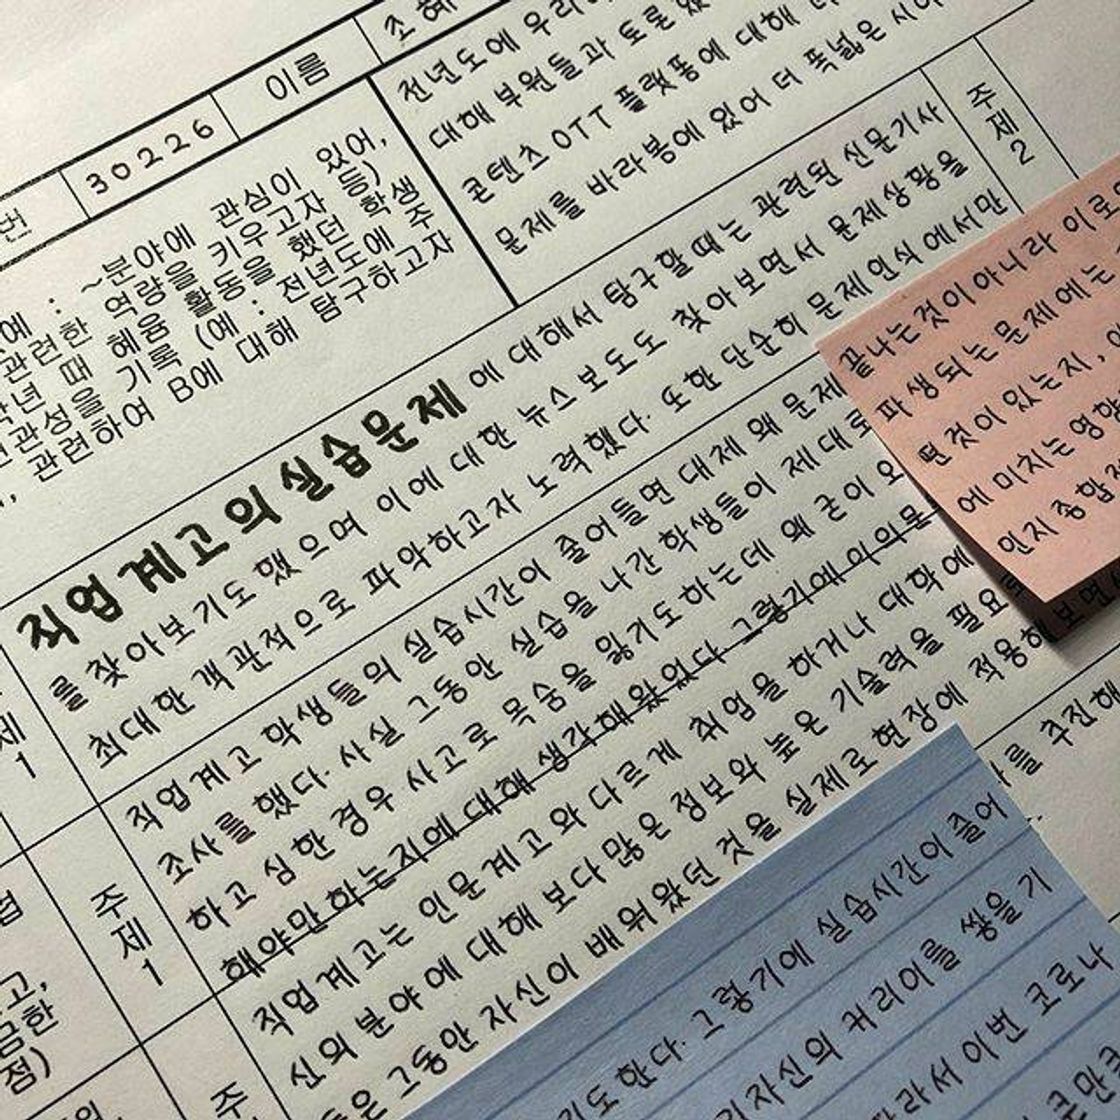 번
30226
이름
조혜
예 : ~분야에 관심이 있어,
관련한 역량을 키우고자
학년 때 활동을 했던 학생
연관성을 기를 (예 : 전년도에 주
, 관련하여 B에 대해 탐구하고자
전년도에 우리
대해 부원들과 토론
콘텐츠 OTT 플랫퐁에 대해
문제를 바라봉에 있어 더 폭넓은
주제2
직업계고의 실습문제에 대해서 탐구할때는 관련된 신문기사
를 찾아보기도 했으며 이에 대한 뉴스보도도 찾아보면서 문제상황을
최대한 객관적으로 파악하고자 노력했다. 또한 단순히 문제인식에서만
제1
끝나는것이 아니라 이로
파생되는 문제에는
떤것이 있는지,
에 미치는 영향
인지 종합적
직업계고 학생들의 실습시간이 줄어들면 대체 왜 문제
조사를 했다. 사실 그동안 실습을 나간 학생들이 제대로
하고 심한 경우 사고로 목숨을 잃기도하는데 왜 굳이 오
해야만 하는지에 대해 생각해왔었다 그렇기에 의문
주제1
직업계고는 인문계고와 다르게 취업을 하거나 대학에
신의 분야에 대해 보다많은 정보와 높은 기술력을 필요로
들은 그동안 자신이 배워왔던 것을 실제로 현장에 적용해보면
를 추진해
고,
금한
점)
주
기도한다. 그렇기에 실습시간이 줄어
자신의 커리어를 쌓을 기
라서 이번 코로나
큰만큼